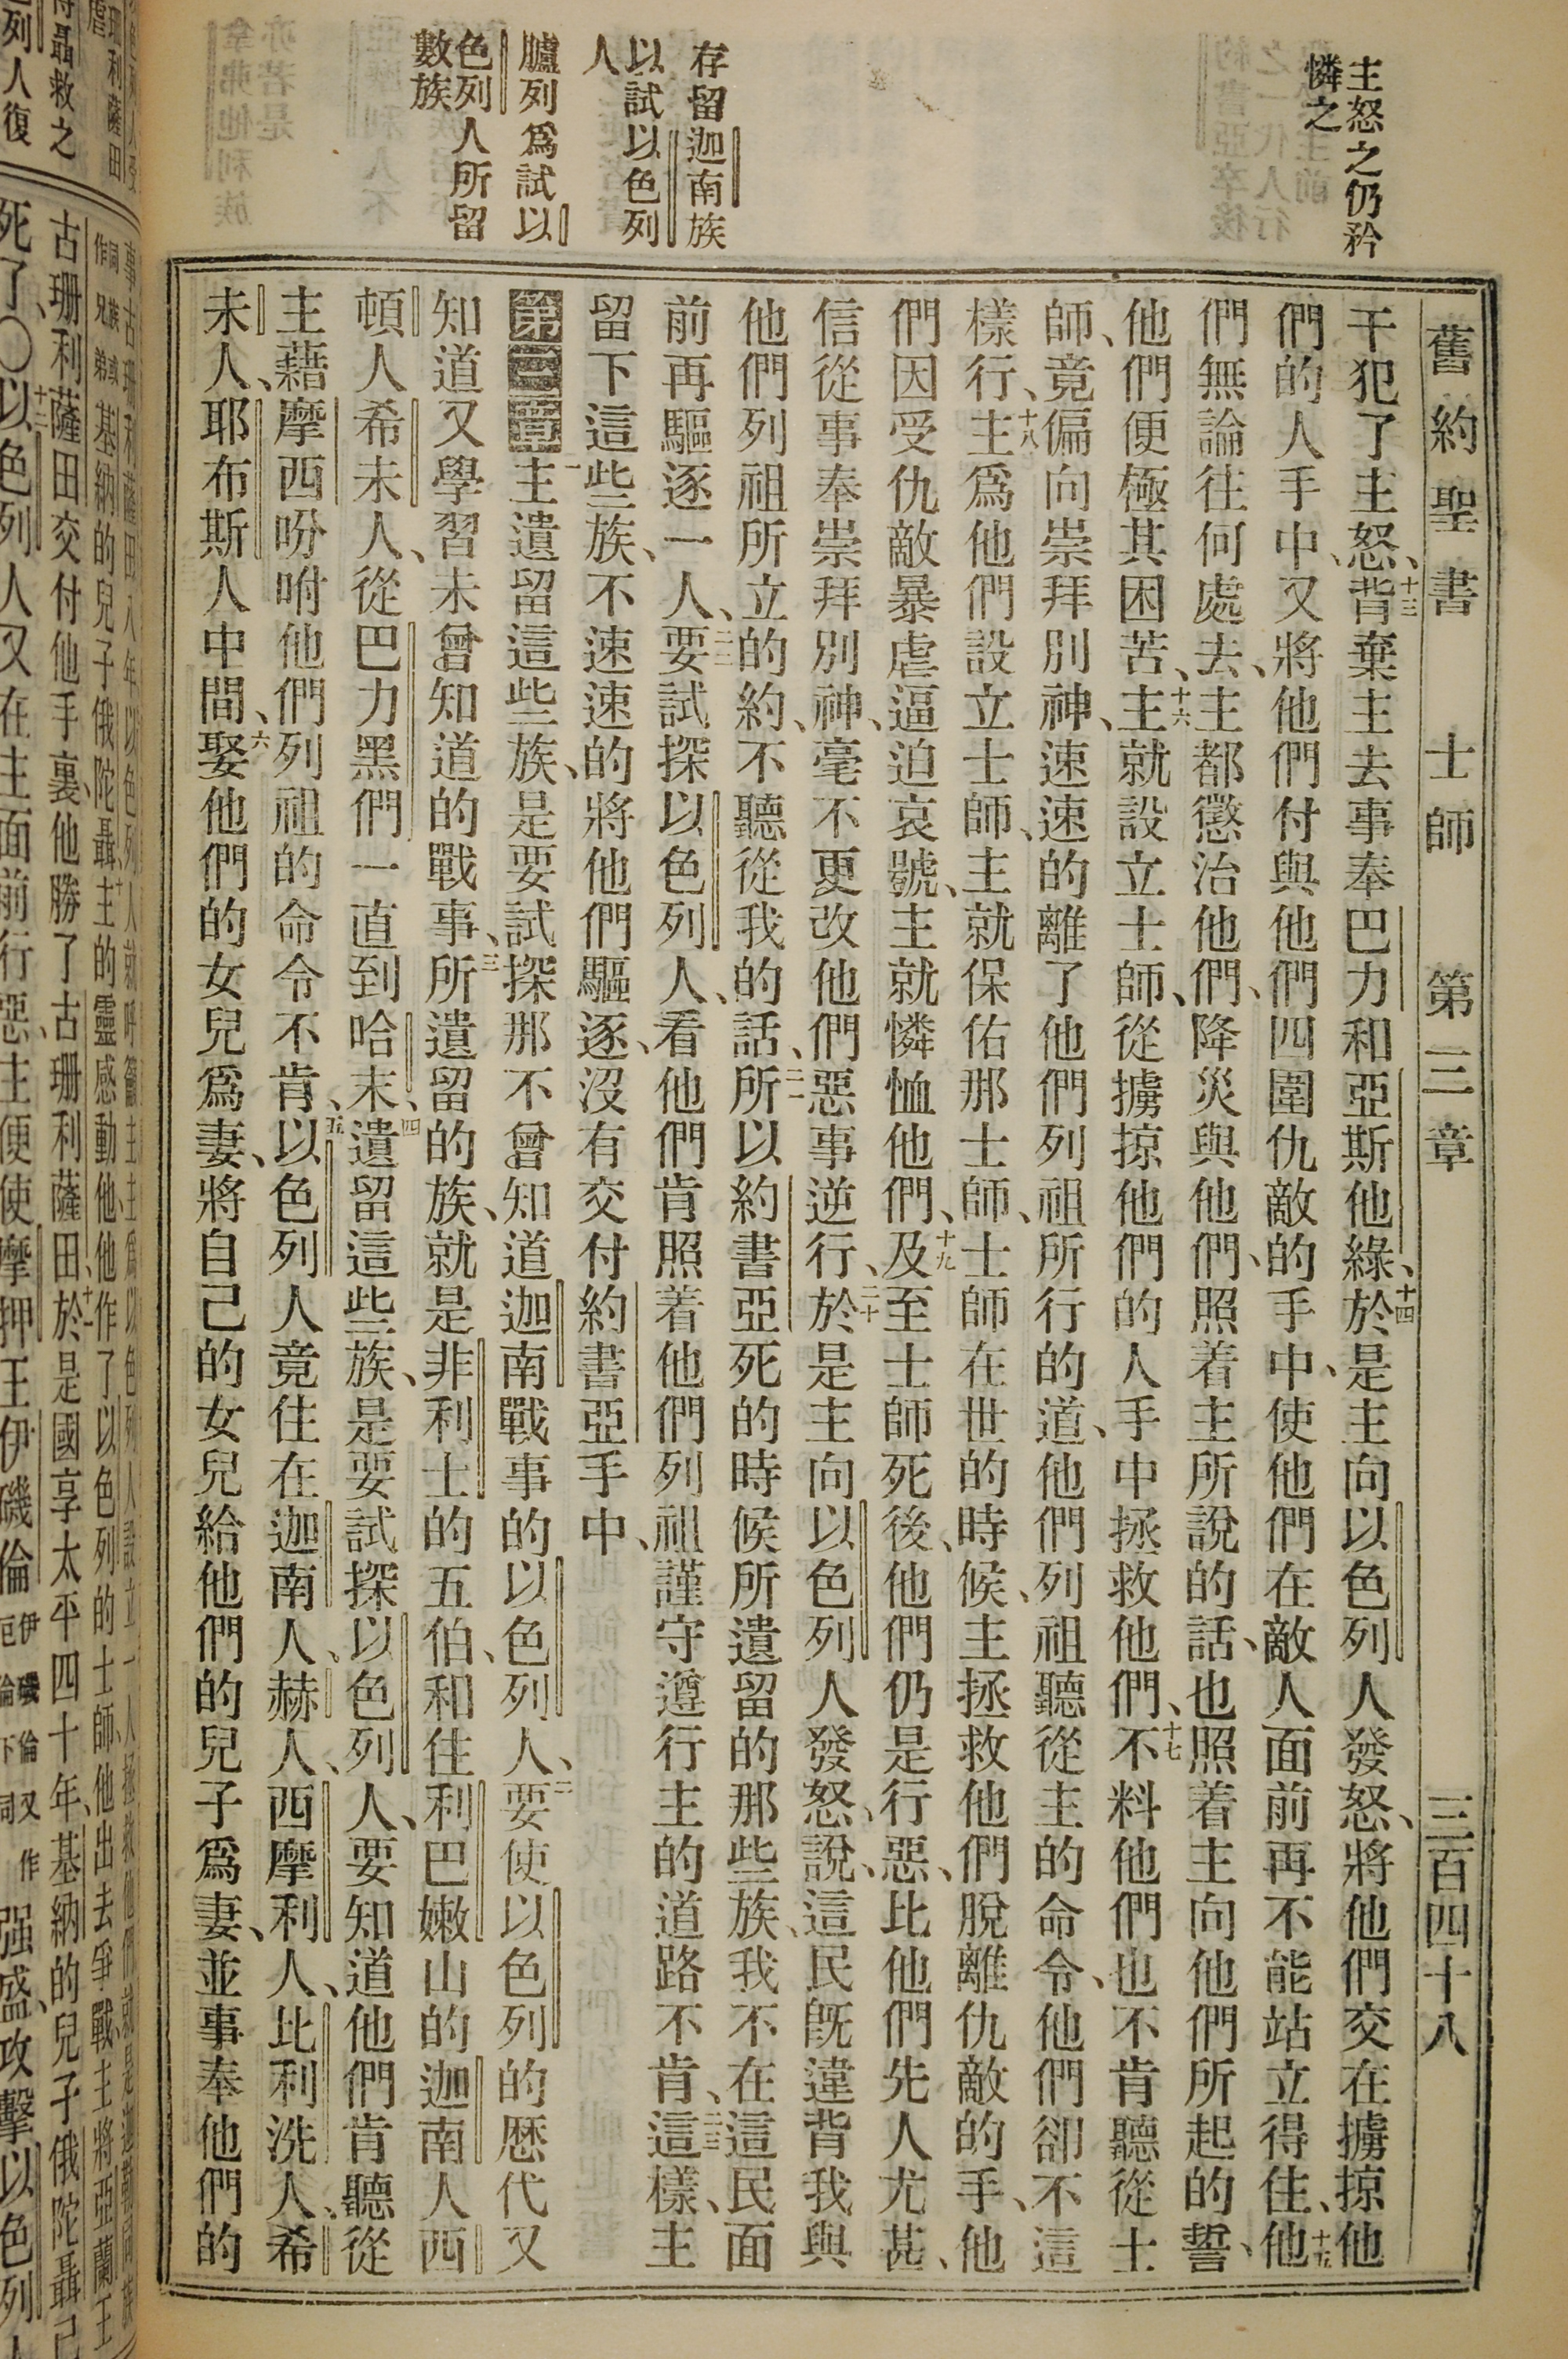 舊約聖書 士師 第三章 三百四十八
主怒之仍矜
憐之
存留迦南族
以試以色列
人
臚列爲試以
色列人所留
數族
干犯了主怒、十三背棄主去事奉巴力和亞斯他綠、十四於是主向以色列人發怒、將他們交在擄掠他
們的人手中、又將他們付與他們四圍仇敵的手中、使他們在敵人面前再不能站立得住、十五他
們無論往何處去、主都懲治他們、降災與他們、照着主所說的話、也照着主向他們所起的誓、
他們便極其困苦、十六主就設立士師、從擄掠他們的人手中拯救他們、十七不料他們也不肯聽從士
師、竟偏向崇拜別神、速速的離了他們列祖所行的道、他們列祖聽從主的命令、他們卻不這
樣行、十八主爲他們設立士師、主就保佑那士師、士師在世的時候、主拯救他們脫離仇敵的手、他
們因受仇敵暴虐逼迫哀號、主就憐恤他們、十九及至士師死後、他們仍是行惡、比他們先人尤甚、
信從事奉崇拜別神、毫不更改他們惡事逆行、二十於是主向以色列人發怒、說、這民旣違背我與
他們列祖所立的約、不聽從我的話、二一所以約書亞死的時候所遺留的那些族、我不在這民面
前再驅逐一人、二二要試探以色列人、看他們肯照着他們列祖謹守遵行主的道路不肯、二三這樣、主
留下這些族、不速速的將他們驅逐、沒有交付約書亞手中、
第三章 一主遺留這些族、是要試探那不曾知道迦南戰事的以色列人、二要使以色列的歷代又
知道又學習未曾知道的戰事、三所遺留的族、就是非利士的五伯、和住利巴嫩山的迦南人西
頓人希未人、從巴力黑們一直到哈末、四遺留這些族、是要試探以色列人、要知道他們肯聽從
主藉摩西吩咐他們列祖的命令不肯、五以色列人竟住在迦南人、赫人、西摩利人、比利洗人、希
未人、耶布斯人中間、六娶他們的女兒爲妻、將自己的女兒給他們的兒子爲妻、並事奉他們的
古珊利薩田交付他手裏、他勝了古珊利薩田、十一於是國享太平四十年、基納的兒子俄陀聶已
死了、〇十二以色列人又在主面前行惡、主便使摩押王伊磯倫強盛、攻擊以色列人